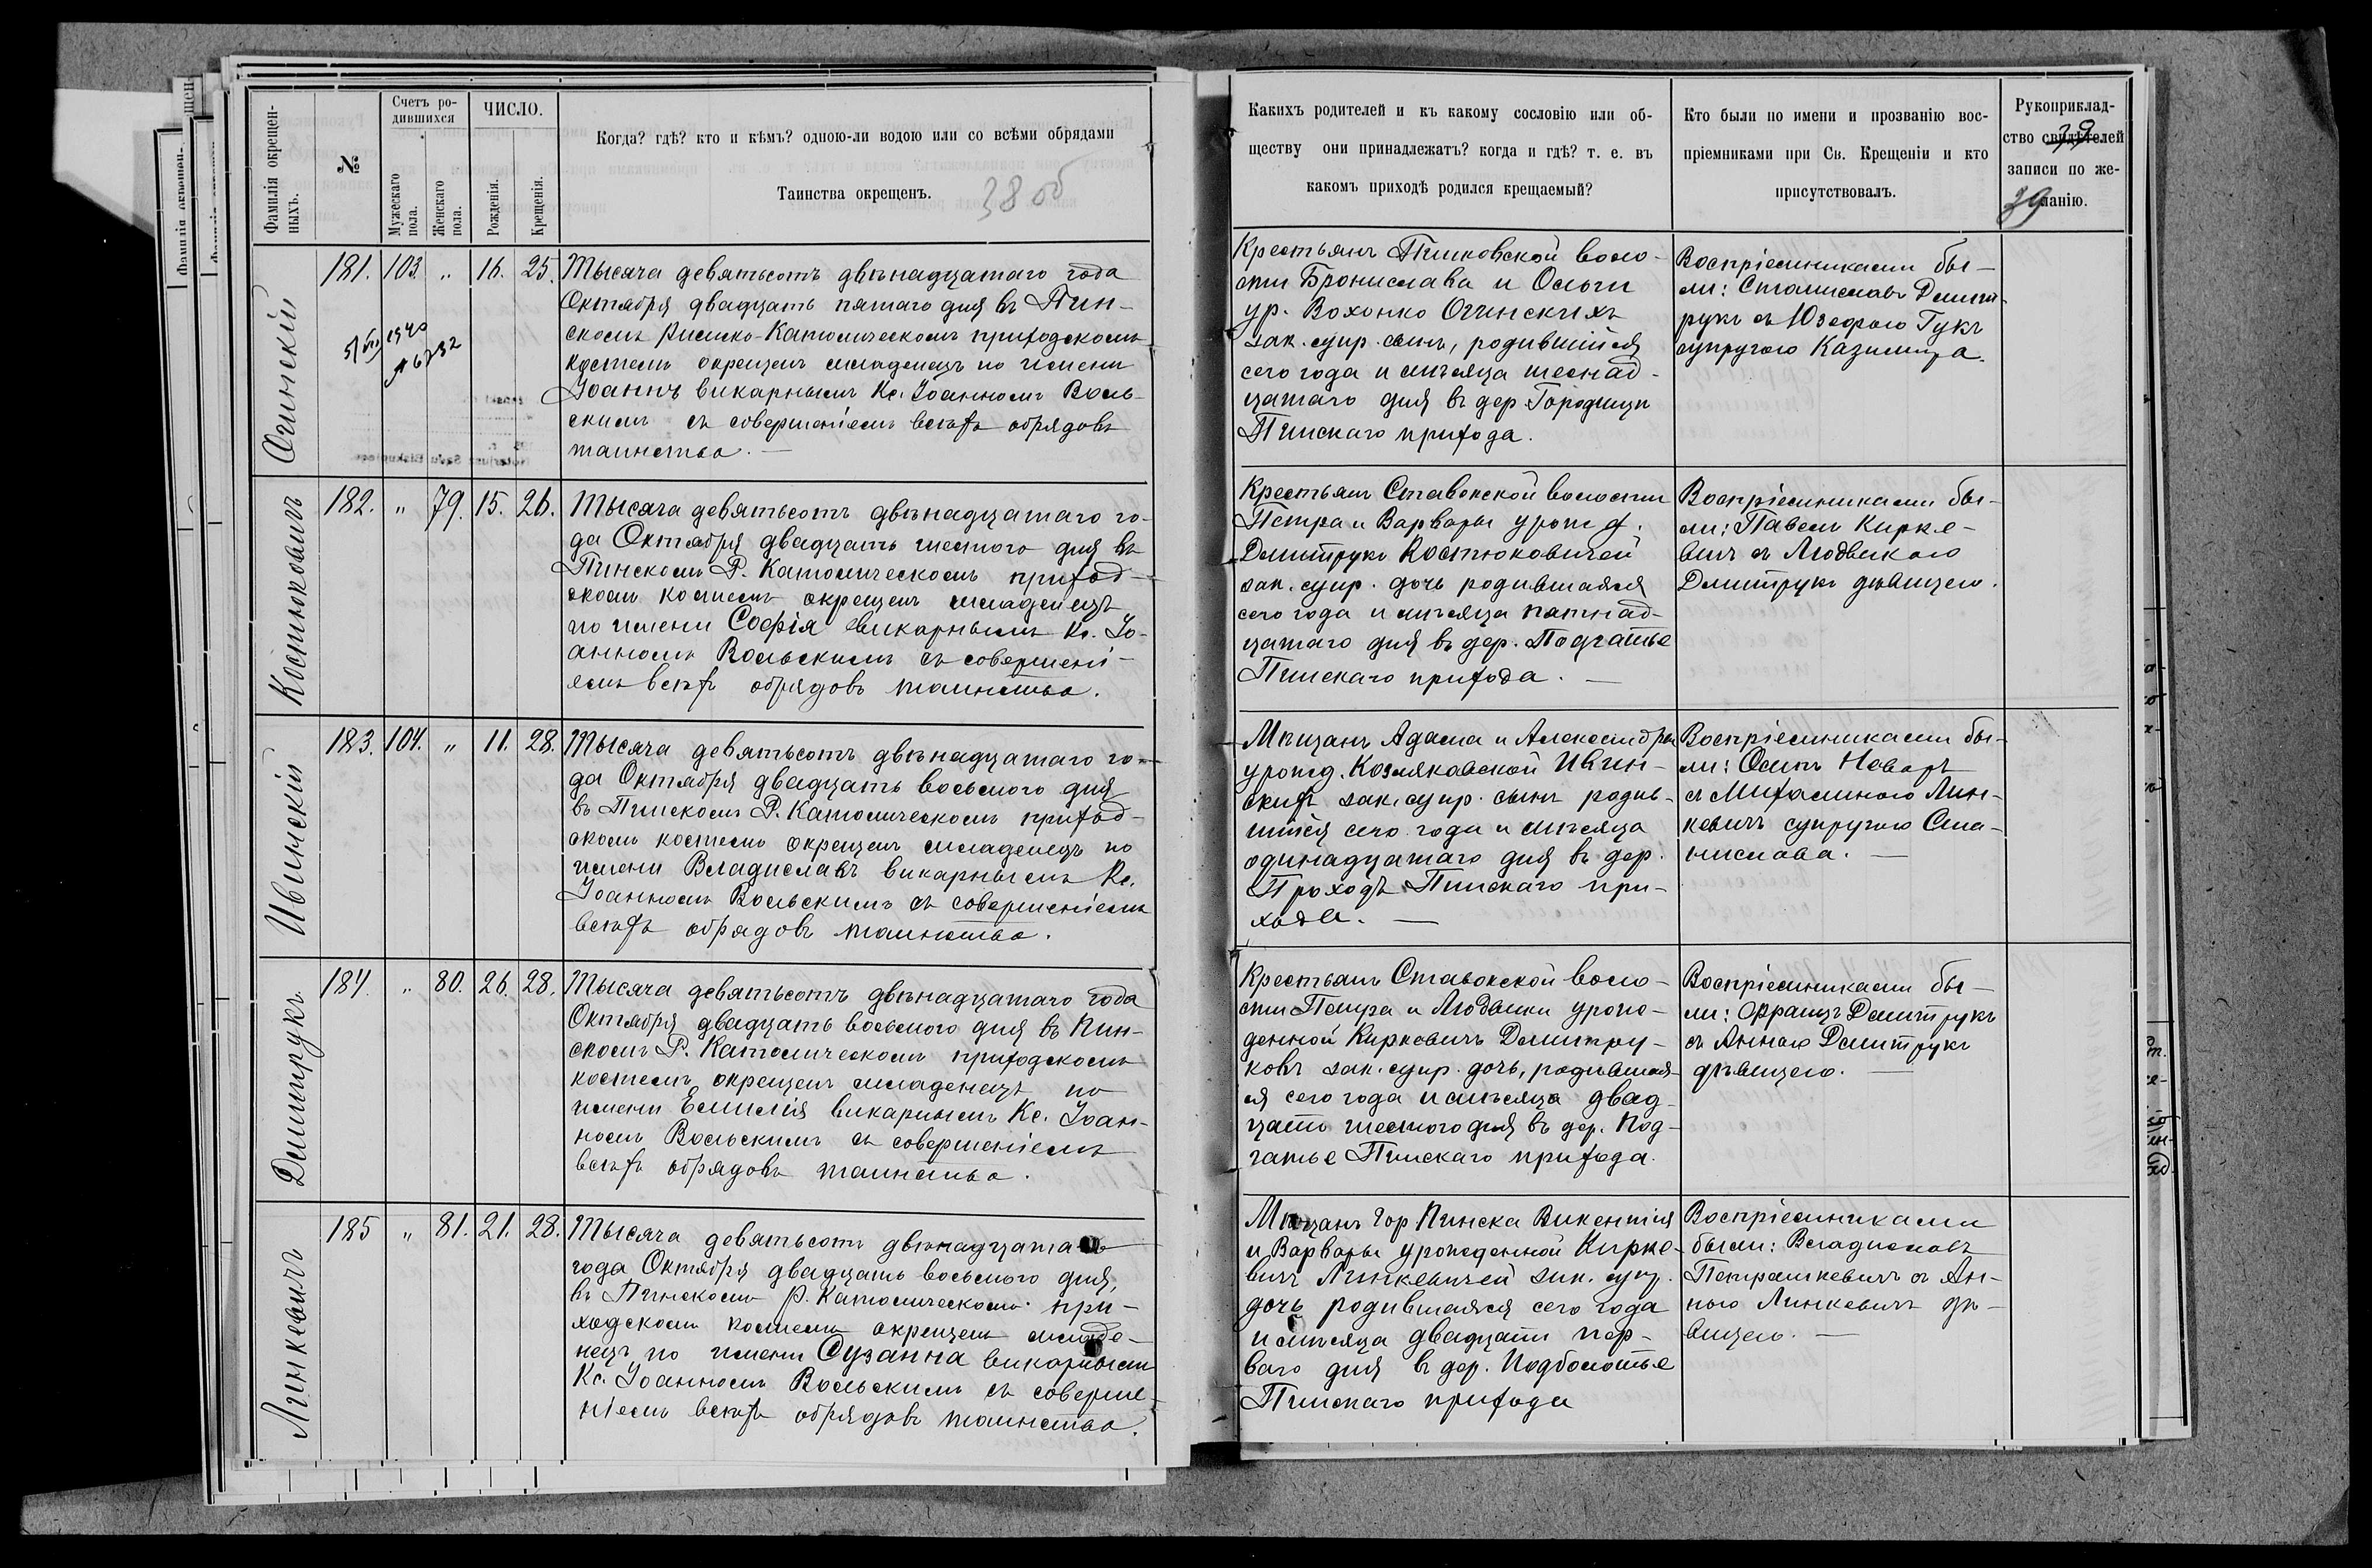 Фамилія окрещен-
ныхъ.
№
Счетъ ро-
дившихся
Мужескаго
пола.
Женскаго
пола.
ЧИСЛО.
Рожденія.
Крещенія.
Когда? гдѣ? кто и кѣмъ? одною-ли водою или со всѣми обрядами
Таинства окрещенъ.
38 об
Огинскій
181. 103. „ 16. 25.
5/VII 1940
№ 6732
Тысяча девятьсотъ двѣнадцатаго года
Октября двадцать пятаго дня въ Пин-
скомъ Римско-Католическомъ приходскомъ
костелѣ окрещенъ младенецъ по имени
Іоаннъ викарнымъ Кс. Іоанномъ Воль-
скимъ съ совершеніемъ всѣхъ обрядовъ
таинства. —
Костюковичъ
182. „ 79. 15. 26.
Тысяча девятьсотъ двѣнадцатаго го-
да Октября двадцать шестого дня въ
Пинскомъ Р. Католическомъ приход-
скомъ костелѣ окрещенъ младенецъ
по имени Софія викарнымъ Кс. Іо-
анномъ Вольскимъ съ совершені-
емъ всѣхъ обрядовъ таинства.
Ивинскій
183. 104. „ 11. 28.
Тысяча девятьсотъ двѣнадцатаго го-
да Октября двадцать восьмого дня
въ Пинскомъ Р. Католическомъ приход-
скомъ костелѣ окрещенъ младенецъ по
имени Владиславъ викарнымъ Кс.
Іоанномъ Вольскимъ съ совершеніемъ
всѣхъ обрядовъ таинства.
Дмитрукъ
184. „ 80. 26. 28.
Тысяча девятьсотъ двѣнадцатаго года
Октября двадцать восьмого дня въ Пин-
скомъ Р. Католическомъ приходскомъ
костелѣ окрещенъ младенецъ по
имени Емилія викарнымъ Кс. Іоан-
номъ Вольскимъ съ совершеніемъ
всѣхъ обрядовъ таинства.
Линкевичъ
185 „ 81. 21. 28.
Тысяча девятьсотъ двѣнадцатаго
года Октября двадцать восьмого дня,
въ Пинскомъ Р. Католическомъ при-
ходскомъ костелѣ окрещенъ младе-
нецъ по имени Сузанна викарнымъ
Кс. Іоанномъ Вольскимъ съ соверше-
ніемъ всѣхъ обрядовъ таинства.
Какихъ родителей и къ какому сословію или об-
ществу они принадлежатъ? когда и гдѣ? т. е. въ
какомъ приходѣ родился крещаемый?
Кто были по имени и прозванію вос-
пріемниками при Св. Крещеніи и кто
присутствовалъ.
Рукоприклад-
ство свидѣтелей
записи по же-
ланію.
39
39
Крестьянъ Пинковской воло-
сти Бронислава и Ольги
ур. Вохонко Огинскихъ
зак. супр. сынъ, родившійся
сего года и мѣсяца шеснад-
цатаго дня въ дер. Городищи
Пинскаго прихода.
Воспріемниками бы-
ли: Станиславъ Дмит-
рукъ съ Юзефою Гукъ
супругою Казимира.
Крестьянъ Ставокской волости
Петра и Варвары урожд.
Дмитрукъ Костюковичей
зак. супр. дочь родившаяся
сего года и мѣсяца пятнад-
цатаго дня въ дер. Подгатье
Пинскаго прихода. —
Воспріемниками бы-
ли: Павелъ Кирке-
вичъ съ Людвикою
Дмитрукъ дѣвицею.
Мѣщанъ Адама и Александры
урожд. Козляковской Ивин-
скихъ зак. супр. сынъ родив-
шійся сего года и мѣсяца
одинадцатаго дня въ дер.
Проходъ Пинскаго при-
хода. —
Воспріемниками бы-
ли: Осипъ Новаръ
съ Михалиною Лин-
кевичъ супругою Ста-
нислава. —
Крестьянъ Ставокской воло-
сти Петра и Людвики урож-
денной Киркевичъ Дмитру-
ковъ зак. супр. дочь, родившая-
ся сего года и мѣсяца двад-
цать шестого дня въ дер. Под-
гатье Пинскаго прихода.
Воспріемниками бы-
ли: Францъ Дмитрукъ
съ Анною Дмитрукъ
дѣвицею. —
Мѣщанъ гор Пинска Викентія
и Варвары урожденной Кирке-
вичъ Линкевичей зак. супр.
дочь родившаяся сего года
и мѣсяца двадцать пер-
ваго дня въ дер. Подболотье
Пинскаго прихода
Воспріемниками
были: Владиславъ
Петрашкевичъ съ Ан-
ною Линкевичъ дѣ-
вицею. —